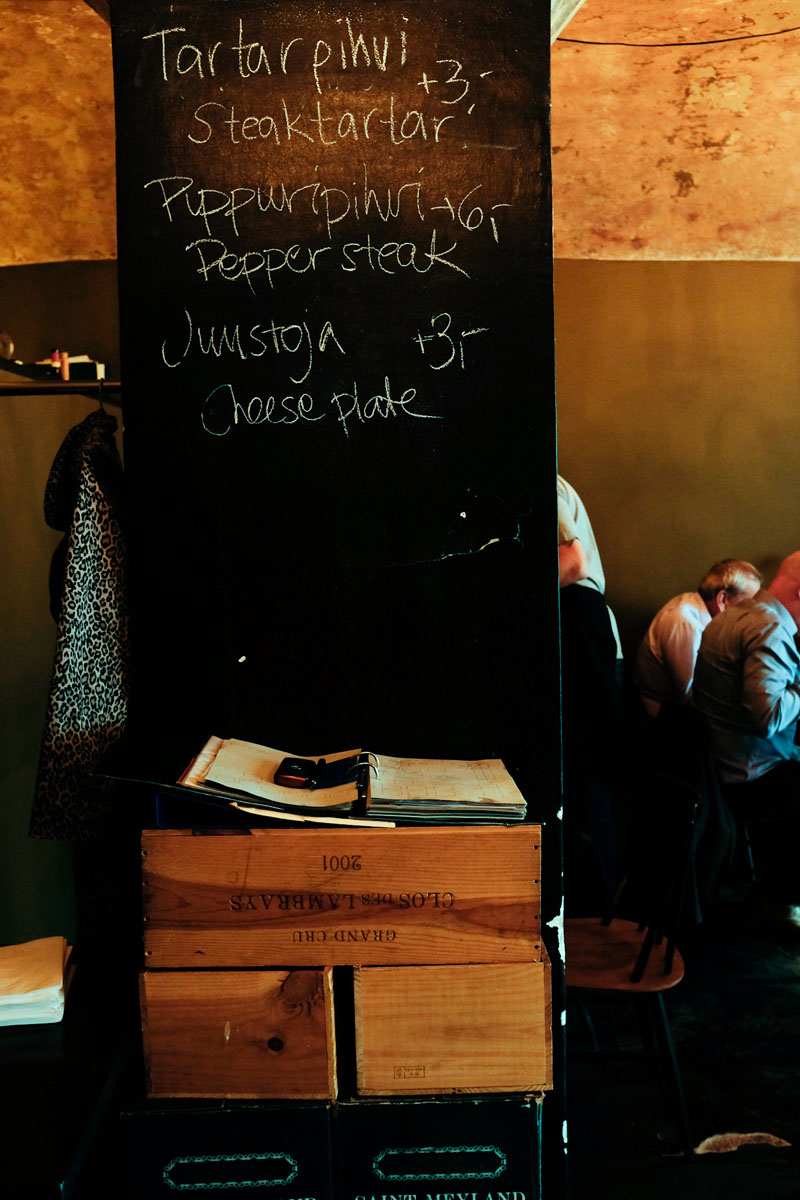 Tartarpihvi
+3,-
Steaktartar
Pippuripihvi +6,-
Pepper steak
Juustoja +3,-
Cheese plate
2001
CLOS DES LAMBRAYS
GRAND CRU
SAINT MEYLAND